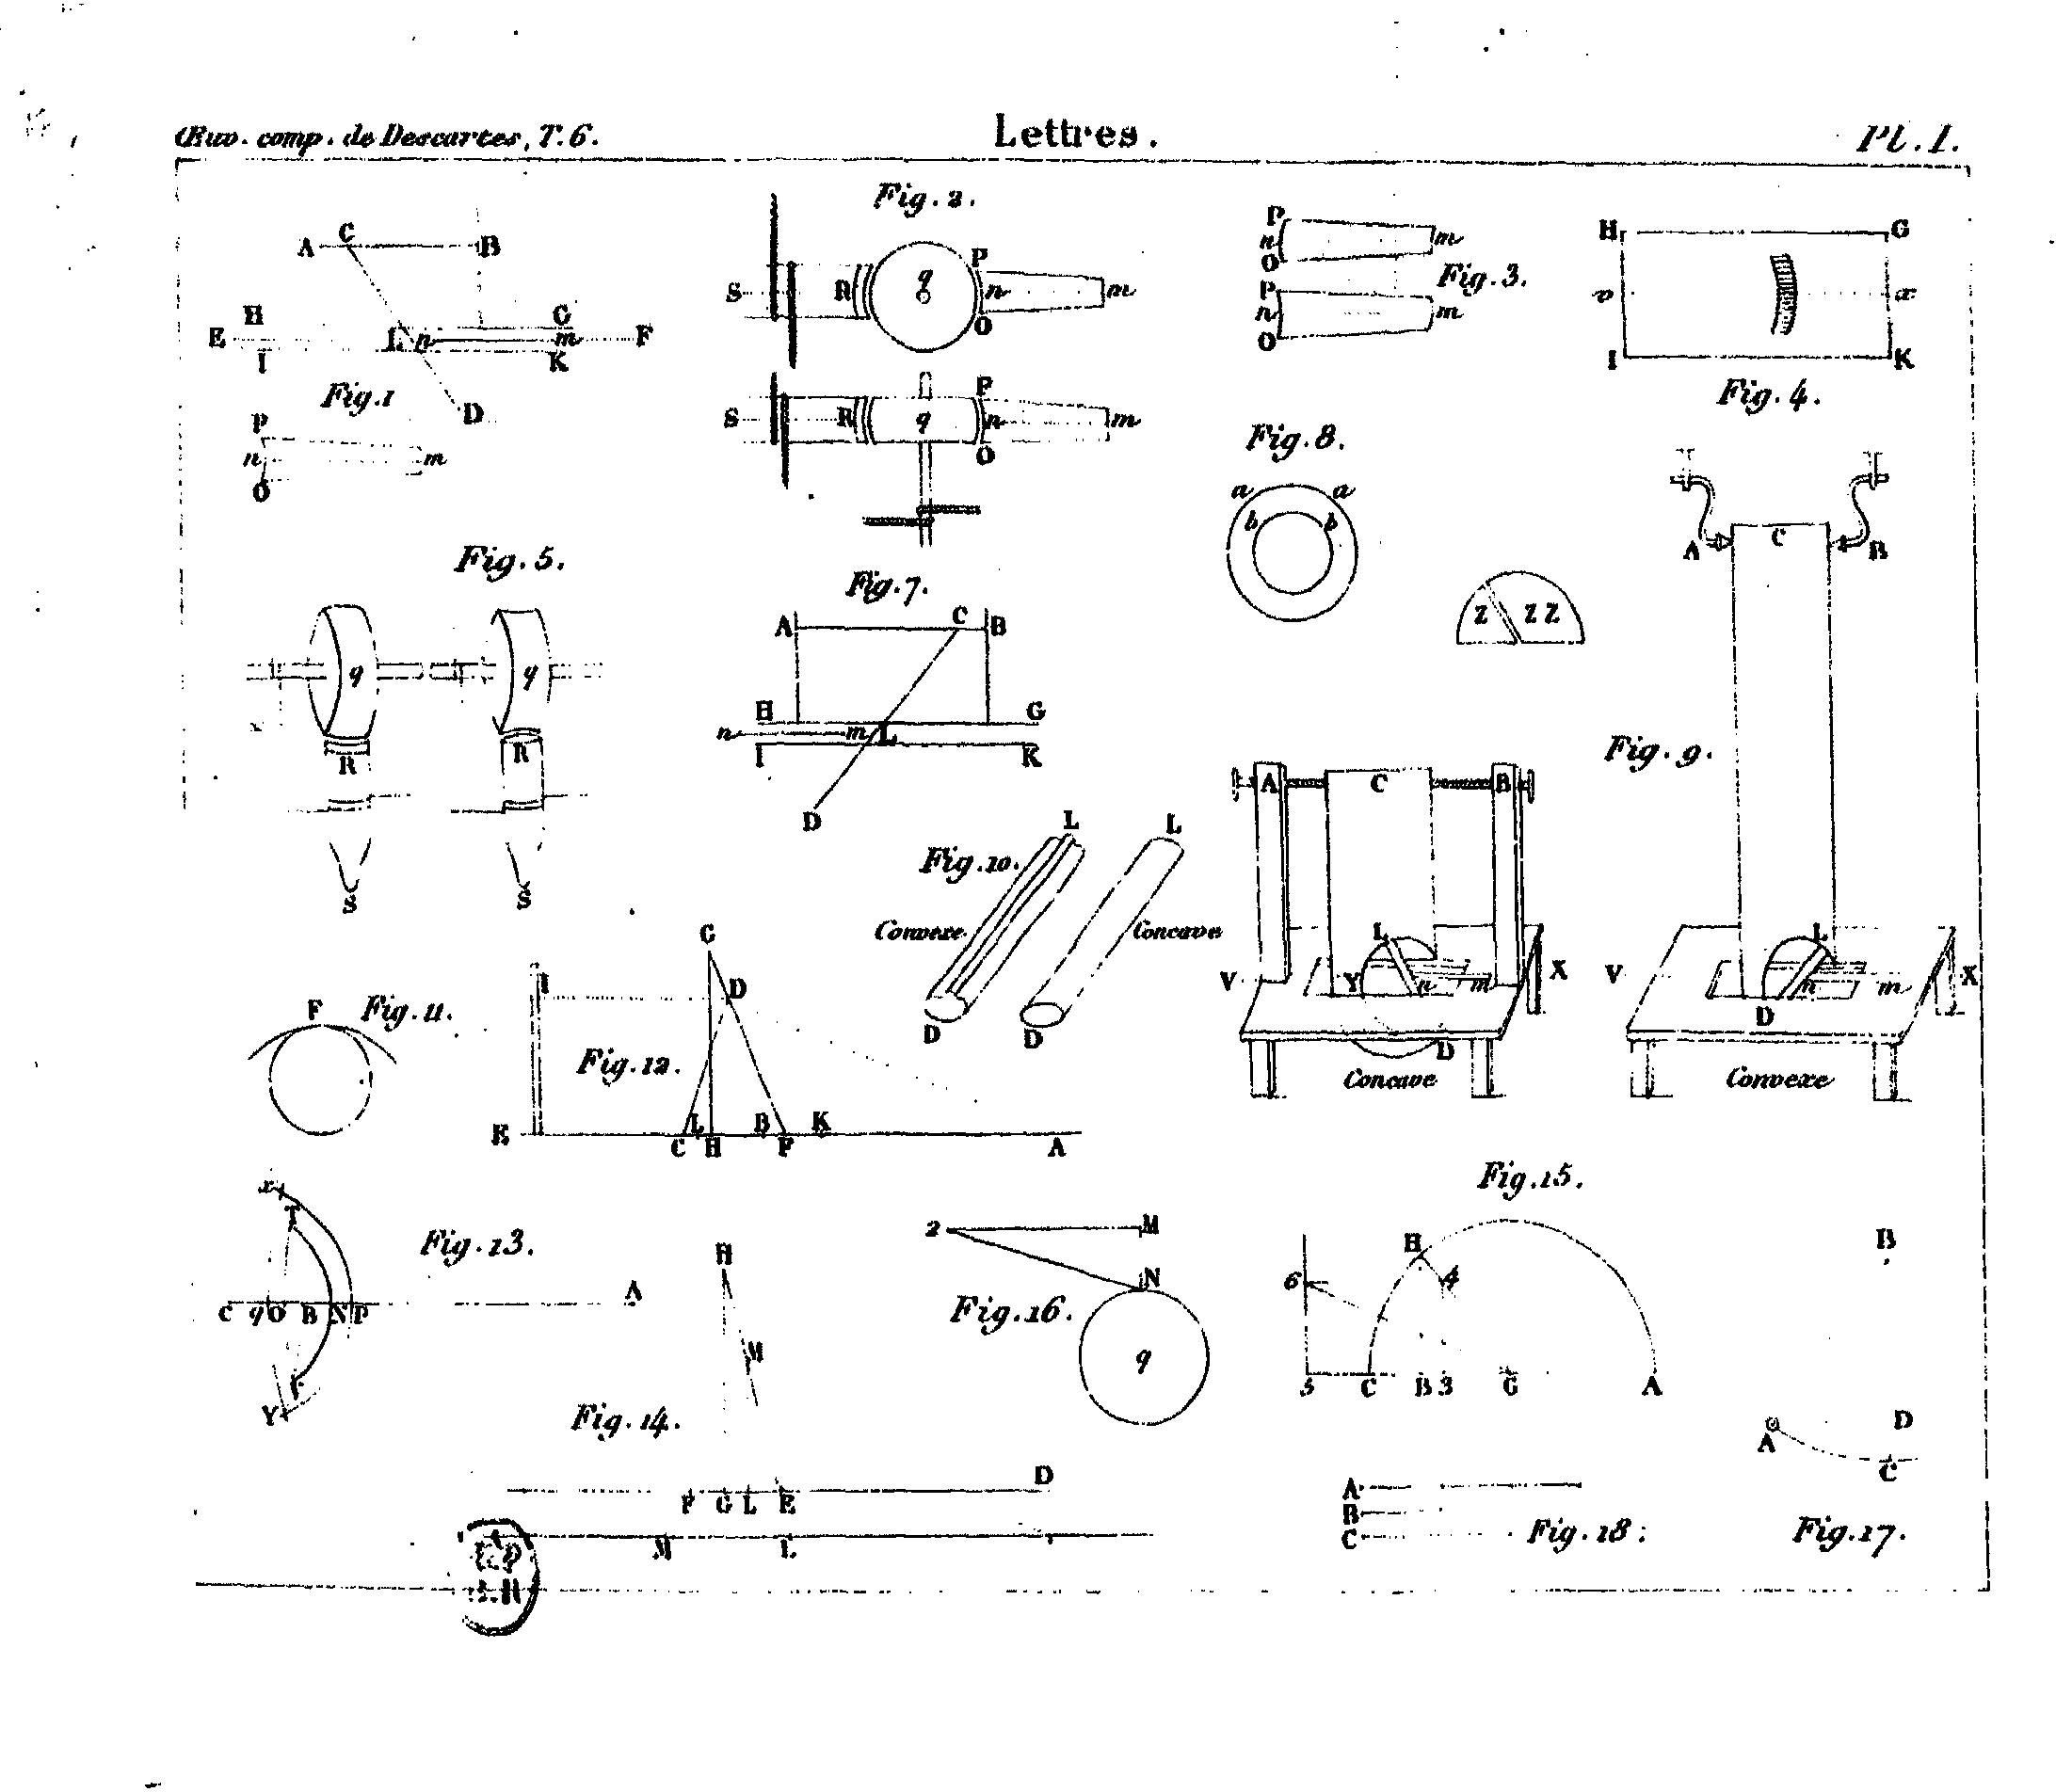 Œuv. comp. de Descartes, T.6.
Lettres.
Pl. 1.
A C B
H G
E L n m F
I K
D
Fig. 1
P
n m
O
Fig. 2.
q P
S R n m
O
P
S R q n m
O
P
n m
O
Fig. 3.
P
n m
O
H G
v x
I K
Fig. 4.
Fig. 5.
q q
R R
S S
Fig. 7.
A C B
H G
n m L
I K
D
Fig. 8.
a a
b b
Z ZZ
A C B
Fig. 9.
L
V n m X
D
Convexe
A C B
L
V Y n m X
D
Concave
Fig. 10.
L L
Convexe Concave
D D
Fig. 11.
F
Fig. 12.
G
I D
E L B K
C H F A
Fig. 13.
x
T
A
C q O B N P
F
Y
Fig. 14.
H
M
D
F G L E
M L
Fig. 15.
H
6 4
5 C B 3 G A
Fig. 16.
2 M
N
q
B
D
A
C
Fig. 17.
A
B
C
Fig. 18.